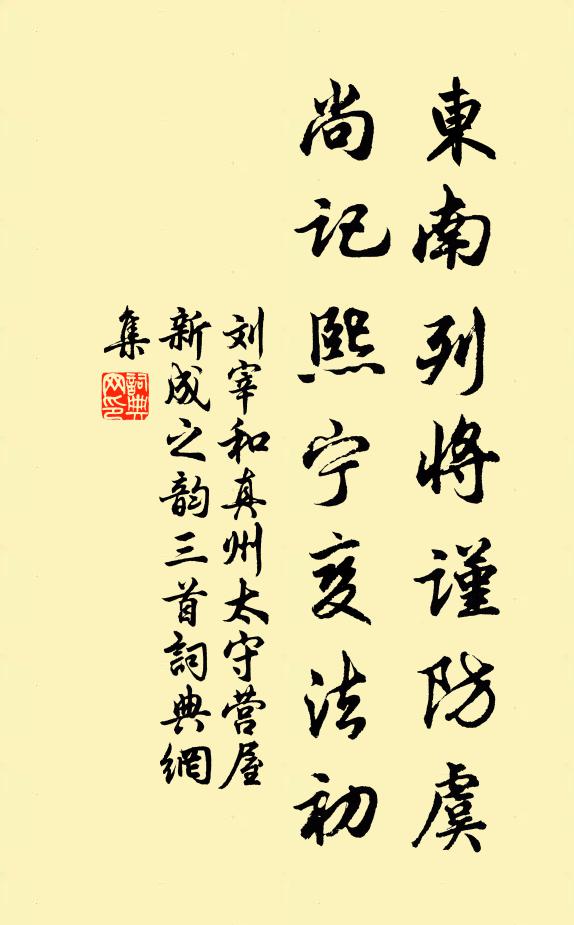 東南列将謹防虞
尚记熙宁变法初
刘宰和真州太守营屋
新成之韵三首詞典網
集
詞典
网印